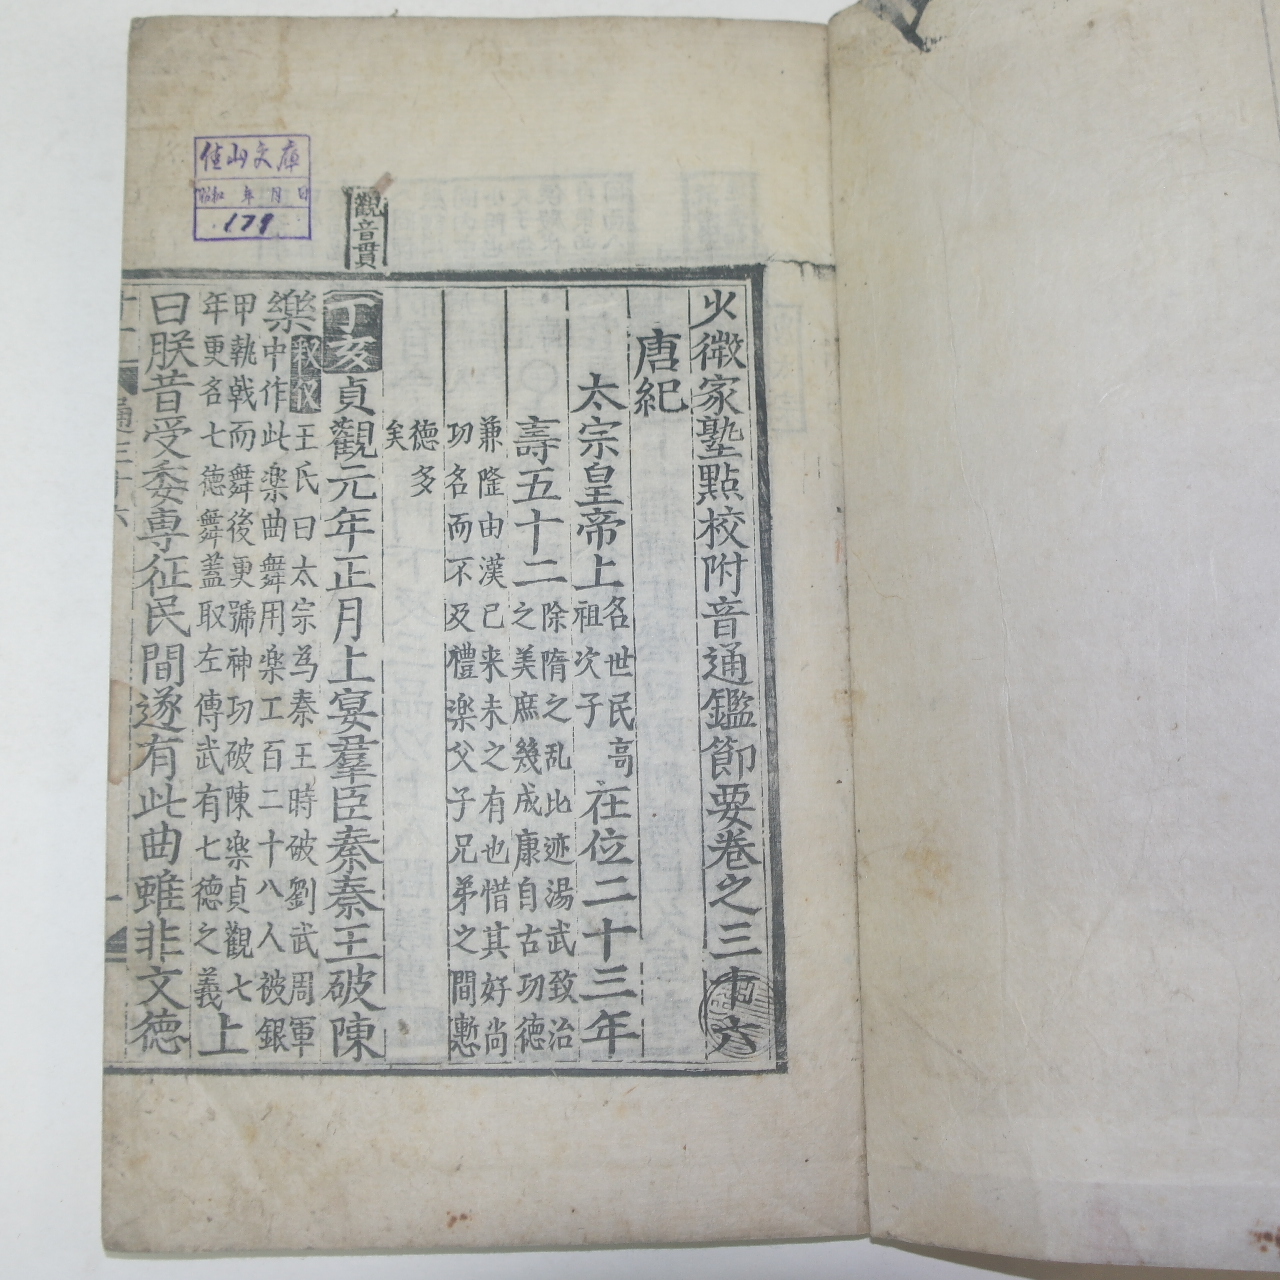 火微家塾點校附音通鑑節要卷之三十六
唐紀
太宗皇帝上 名世民高祖次子 在位二十三年
壽五十二 除隋之乱比迹湯武致治之美庶幾成康自古功徳
兼隆由漢已来未之有也惜其好尚功名而不及禮樂父子兄弟之間慙
徳多矣
觀音貫
丁亥貞觀元年正月上宴羣臣奏秦王破陳
樂 釈仪 王氏曰太宗為秦王時破劉武周軍中作此楽曲舞用楽工百二十八人被銀
甲執戟而舞後更號神功破陳楽貞觀七年更名七徳舞蓋取左傳武有七徳之義 上
曰朕昔受委専征民間遂有此曲雖非文徳
佳山文庫
昭和 年 月 日
179